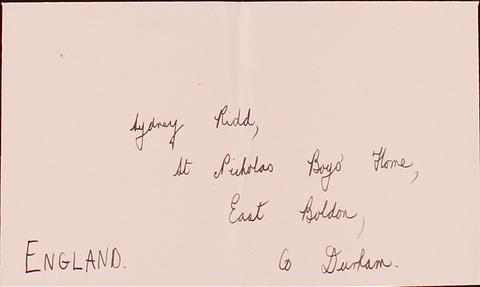 Sydney Ridd,
St Nicholas Boys' Home,
East Boldon,
Co Durham.
ENGLAND.